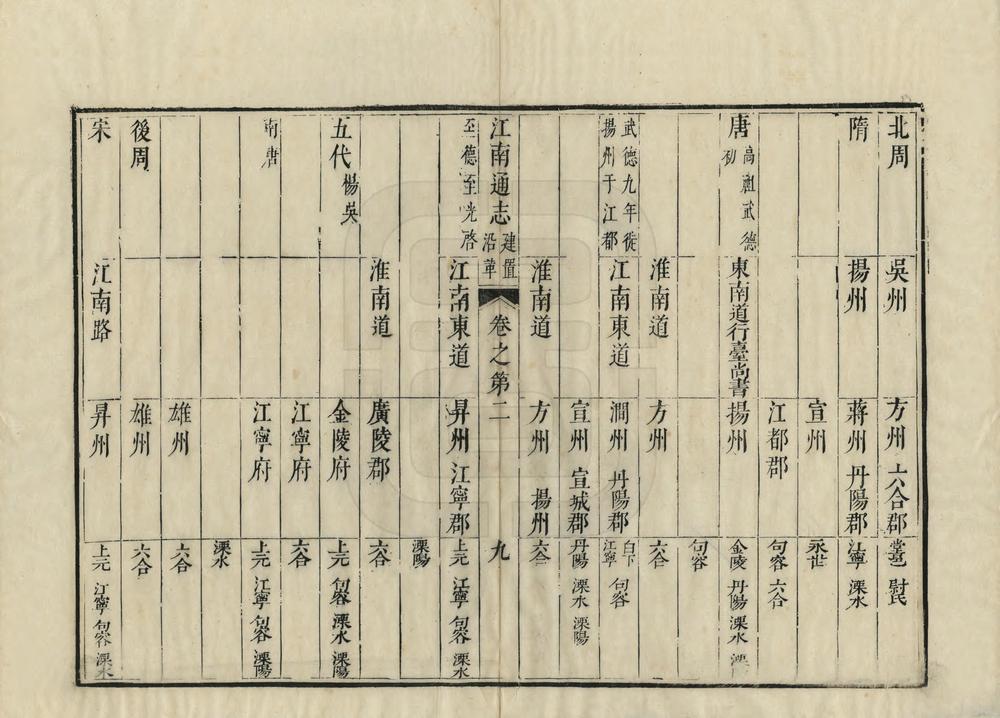 北周 吳州 方州 六合郡 堂邑 尉氏
隋 揚州 蔣州 丹陽郡 江寧 溧水
宣州 永世
江都郡 句容 六合
唐 高祖武德初 東南道行臺尚書 揚州 金陵 丹陽 溧水 溧
句容
淮南道 方州 六合
武德九年徙揚州于江都 江南東道 潤州 丹陽郡 白下 江寧 句容
宣州 宣城郡 丹陽 溧水 溧陽
淮南道 方州 揚州 六合
江南通志 建置沿革 卷之第二 九
至德至光啓 江南東道 昇州 江寧郡 上元 江寧 句容 溧水
溧陽
淮南道 廣陵郡 六合
五代 楊吳 金陵府 上元 句容 溧水 溧陽
江寧府 六合
南唐 江寧府 上元 江寧 句容 溧陽
溧水
雄州 六合
後周 雄州 六合
宋 江南路 昇州 上元 江寧 句容 溧水